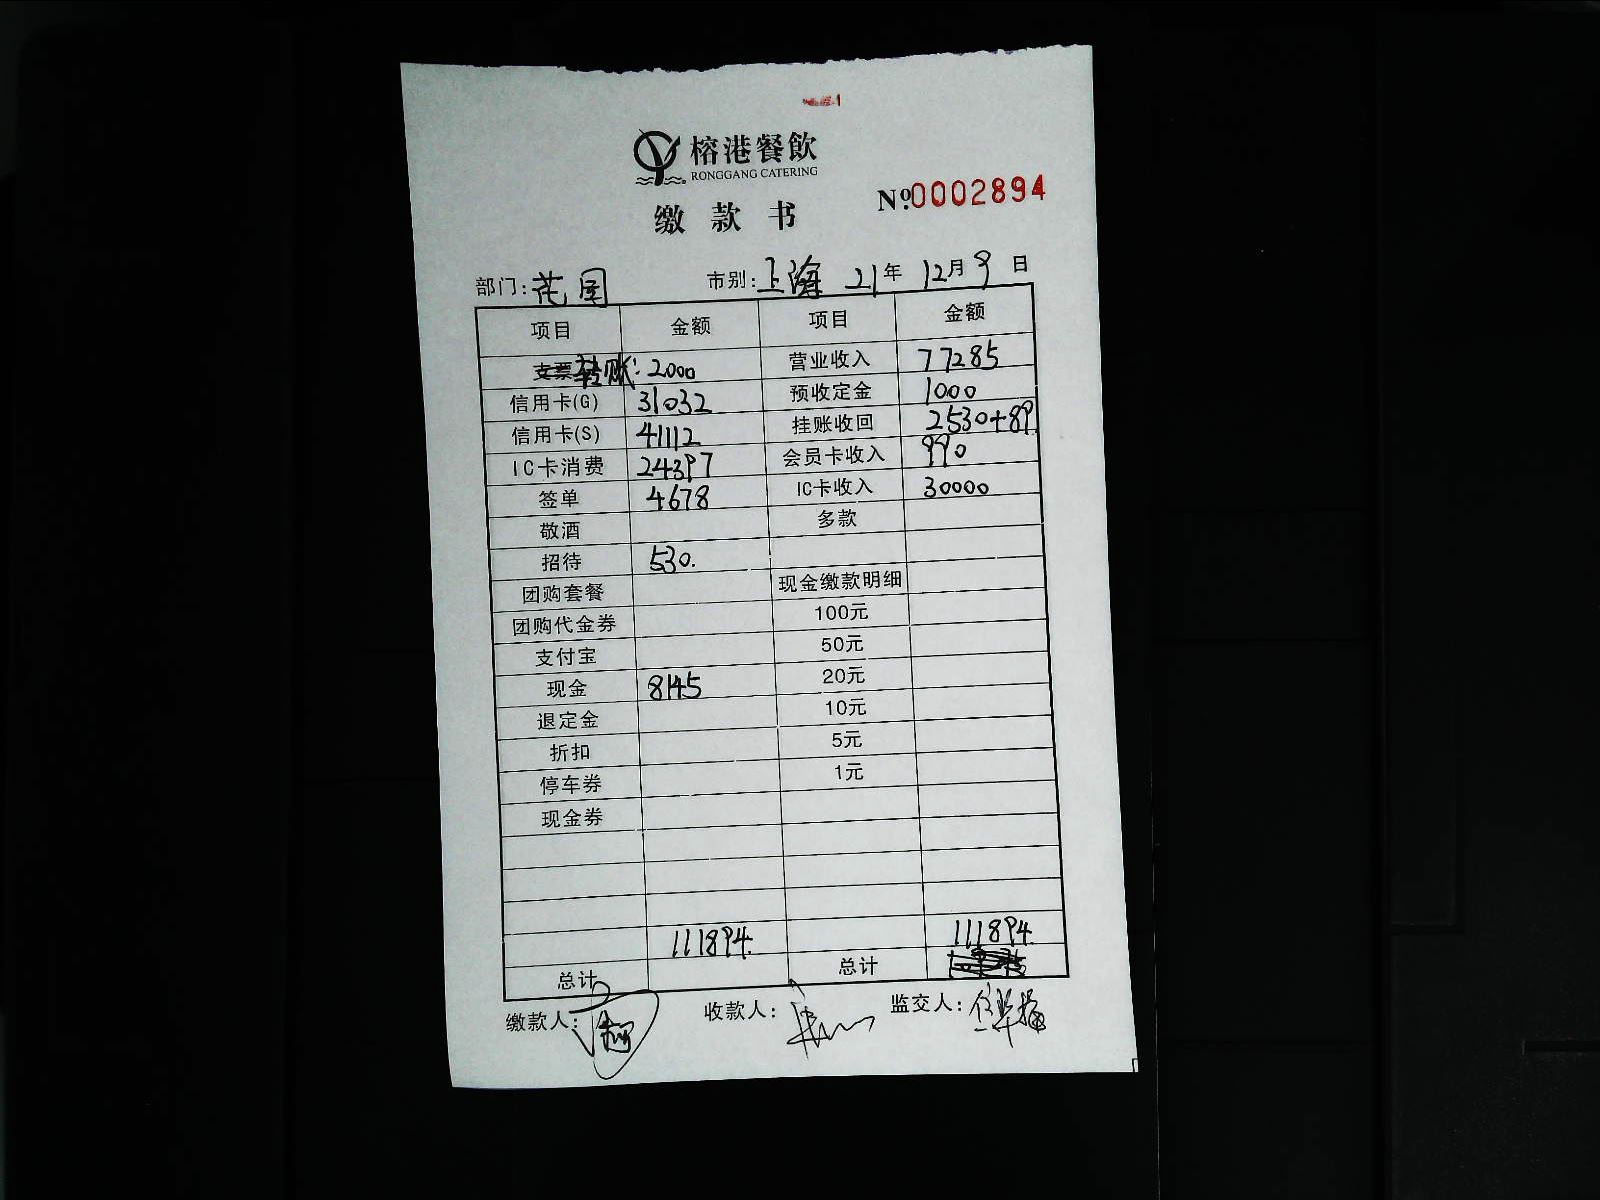 榕港餐飲
RONGGANG CATERING
Nº.0002894
缴款书
部门: 花园 市别: 上海 21年 12月 9日
项目 金额 项目 金额
支票 转账: 2000 营业收入 77285
信用卡(G) 31032 预收定金 1000
信用卡(S) 41112 挂账收回 2530+89
IC卡消费 24397 会员卡收入 990
签单 4678 IC卡收入 30000
敬酒 多款
招待 530.
团购套餐 现金缴款明细
团购代金券 100元
支付宝 50元
现金 8145 20元
退定金 10元
折扣 5元
停车券 1元
现金券
111894. 111894
总计 总计
缴款人: 收款人: 监交人: